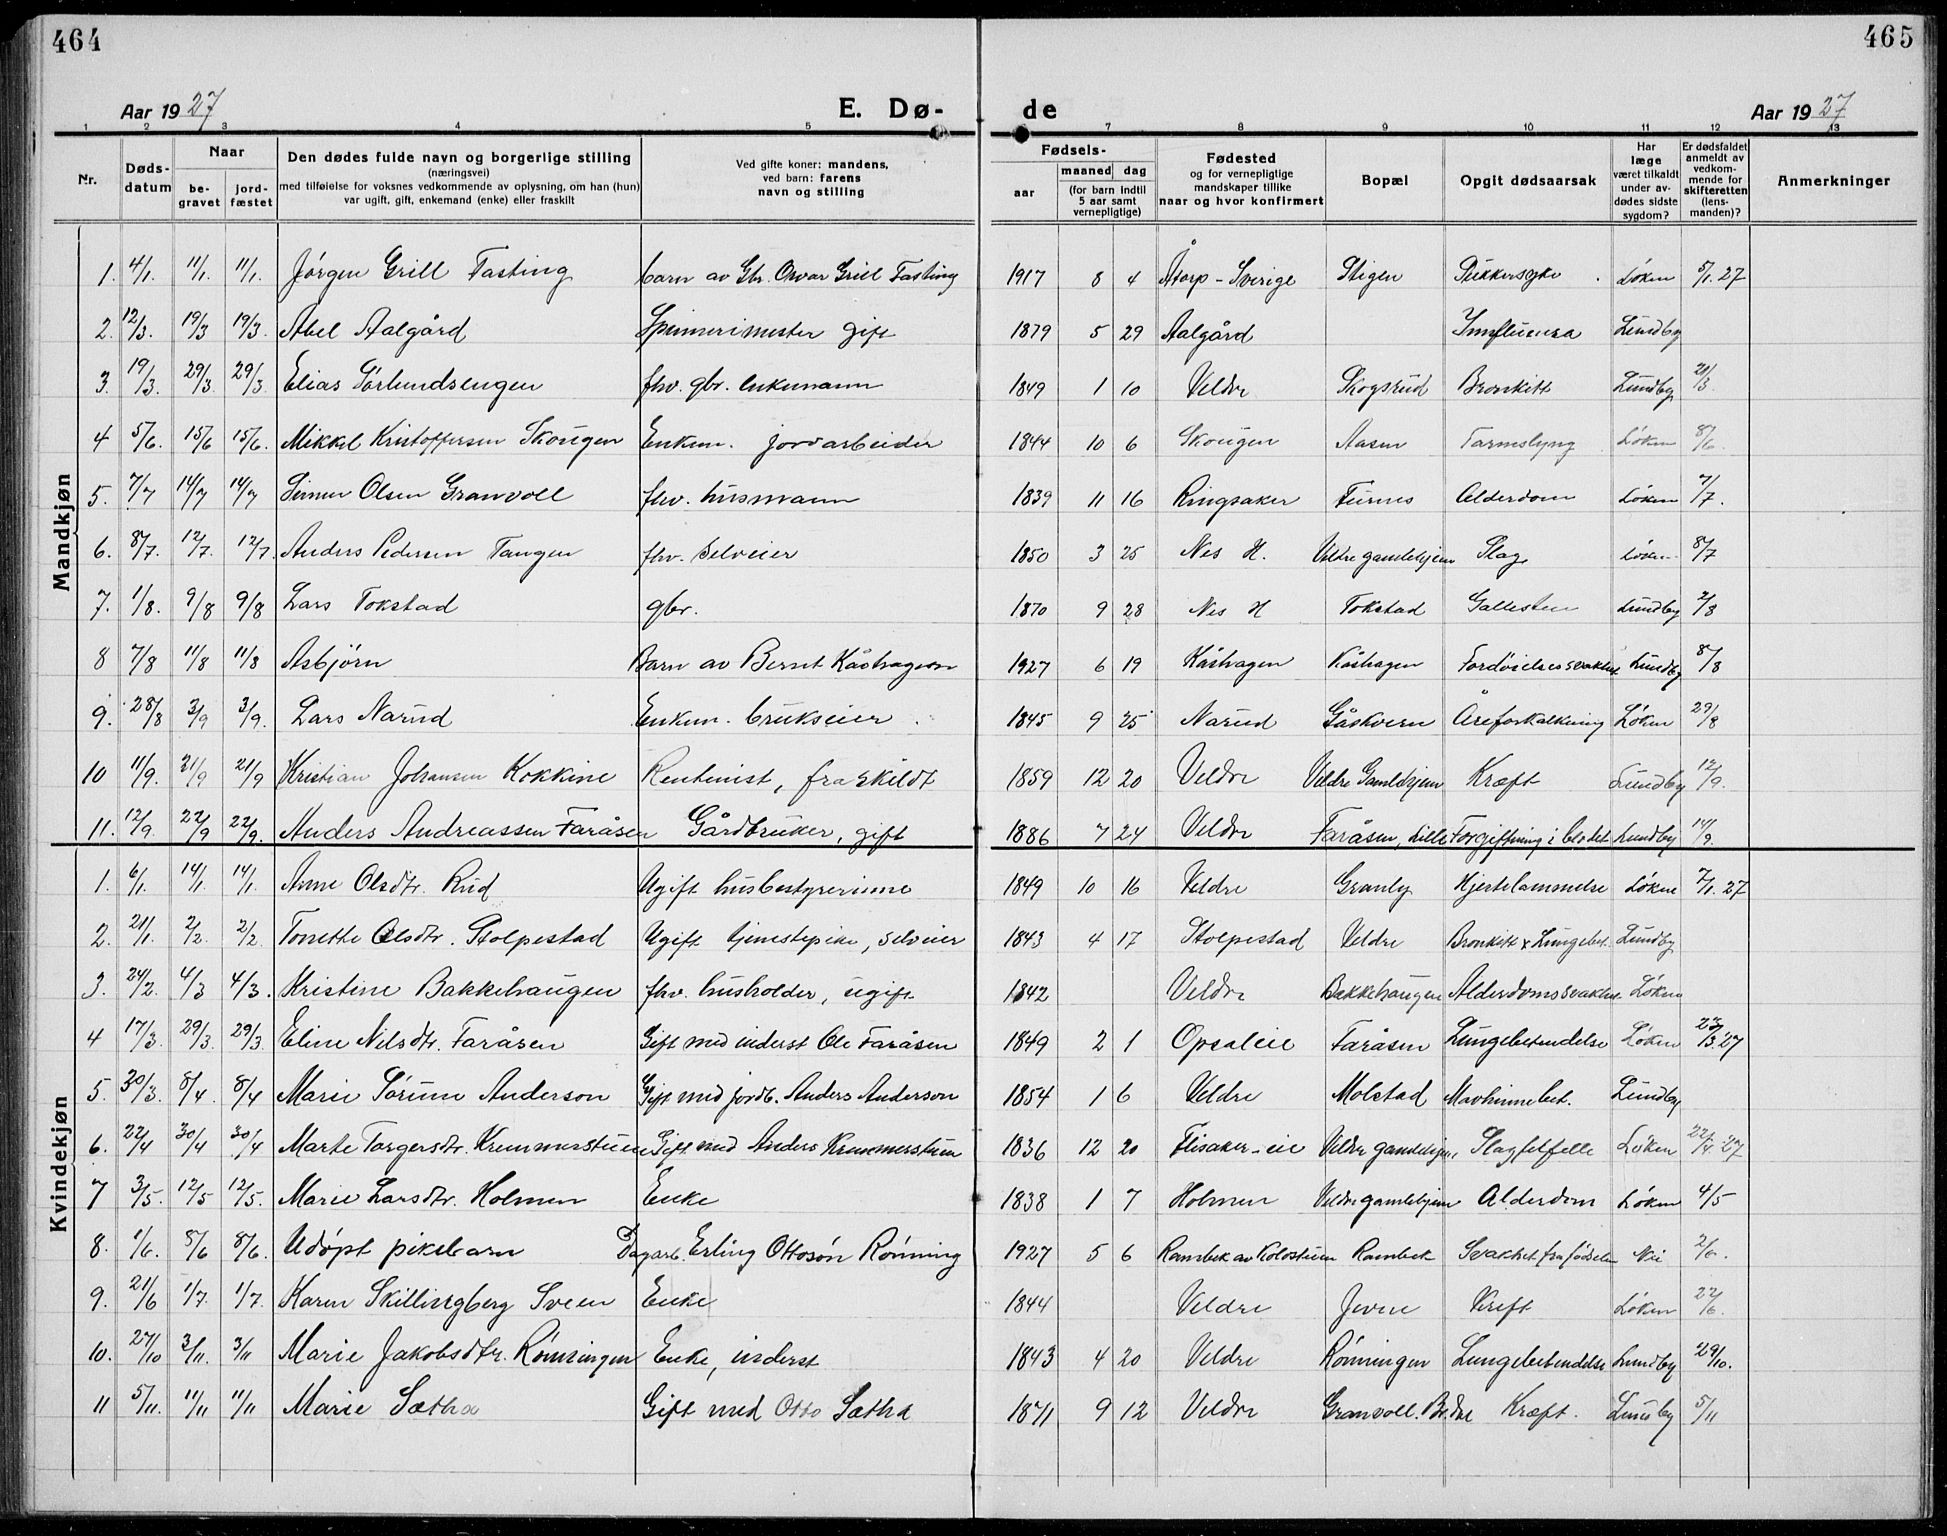 464
465
Aar 1927
E. Dø-
de
Aar 1927
1 2 3 4 5 7 8 9 10 11 12 13
Nr. Døds-datum Naar be-gravet jord-fæstet Den dødes fulde navn og borgerlige stilling (næringsvei) med tilføielse for voksnes vedkommende av oplysning, om han (hun) var ugift, gift, enkemand (enke) eller fraskilt Ved gifte koner: mandens, ved barn: farens navn og stilling Fødsels- aar maaned dag (for barn indtil 5 aar samt vernepligtige) Fødested og for vernepligtige mandskaper tillike naar og hvor konfirmert Bopæl Opgit dødsaarsak Har læge været tilkaldt under av-dødes sidste sygdom? Er dødsfaldet anmeldt av vedkom-mende for skifteretten (lens-manden)? Anmerkninger
Mandkjøn
1. 4/1. 11/1. 11/1. Jørgen Grill Fasting barn av Gbr. Osvar Grill Fasting 1917 8 4 Åtorp - Sverige Stigen Sukkersyke Løken 5/1. 27
2. 12/3. 19/3 19/3. Abel Aalgård Spinnerimester gift 1879 5 29 Aalgård Innfluensa Lundby
3. 19/3. 29/3 29/3. Elias Sørlundsengen fhv. gbr. enkemann 1849 1 10 Veldre Skogsrud Bronkitt Lundby 21/3
4 5/6. 15/6 15/6. Mikkel Kristoffersen Skougen Enkem. jordarbeider 1844 10 6 Skougen Aasen Tarmslyng Løken 8/6.
5. 7/7 14/7 14/7 Simen Olsen Granvoll fhv. husmann 1839 11 16 Ringsaker Furnes Alderdom Løken 7/7.
6. 8/7. 12/7. 12/7. Anders Pedersen Tangen fhv. Selveier 1850 3 25 Nes H. Veldre gamlehjem Slag Løken 8/7
7. 1/8. 9/8 9/8 Lars Tokstad gbr. 1870 9 28 Nes H Tokstad Gallesten Lundby 2/8
8 7/8 11/8 11/8 Asbjørn Barn av Bernt Kåshagen 1927 6 19 Kåshagen Kåshagen Fordøielsessvakhet Lundby 8/8
9. 28/8 3/9 3/9. Lars Narud Enkem. brukseier 1845 9 25 Narud Gåskvern Åreforkalkning Løken 29/8
10 11/9. 21/9 21/9 Kristian Johansen Kokkine Rentenist, fraskildt 1859 12 20 Veldre Veldre Gamlehjem Kræft Lundby 12/9.
11. 12/9. 22/9 22/9. Anders Andreassen Faråsen Gårdbruker, gift 1886 7 24 Veldre Faråsen, Lille Forgiftning i blodet Lundby 14/9.
Kvindekjøn
1. 6/1. 14/1. 14/1. Anne Olsdtr. Rud Ugift husbestyrerinne 1849 10 16 Veldre Granly Hjertelammelse Løken 7/1. 27
2. 21/1. 2/2. 2/2. Tonette Olsdtr. Stolpestad Ugift tjenestepike, selveier 1843 4 17 Stolpestad Veldre Bronkitt & Lungebet. Lundby
3. 24/2. 4/3 4/3. Kristine Bakkehaugen fhv. husholder, ugift 1842 Veldre Bakkehaugen Alderdomssvakhet Løken
4 17/3. 29/3. 29/3. Eline Nilsdtr. Faråsen Gift med inderst Ole Faråsen 1849 2 1 Opsaleie Faråsen Lungebetendelse Løken 22/3 27
5. 30/3. 8/4. 8/4 Marie Sørum Anderson Gift med jordb. Anders Anderson 1854 1 6 Veldre Molstad Mavhinnebet. Lundby
6. 22/4 30/4 30/4 Marte Torgersdtr. Kremmerstuen Gift med Anders Kremmerstuen 1836 12 20 Flisaker-eie Veldre gamlehjem Slagtilfelle Løken 22/4 27
7 3/5. 12/5 12/5. Marie Larsdtr. Holmen Enke 1838 1 7 Holmen Veldre gamlehjem Alderdom Løken 4/5
8. 1/6. 8/6 8/6. Udøpt pikebarn Dagarb. Erling Ottosøn Rønning 1927 5 6 Rambek av Kolostuen Rambek Svakhet fra fødselen Nei 2/6.
9. 21/6 1/7. 1/7. Karen Skillingberg Sveen Enke 1844 Veldre Jevne Kreft Løken 22/6.
10. 27/10 3/11. 3/11 Marie Jakobsdtr. Rønningen Enke, inderst 1843 4 20 Veldre Rønningen Lungebetendelse Lundby 29/10.
11 5/11. 11/11 11/11 Marie Sætha Gift med Otto Sætha 1871 9 12 Veldre Granvoll. Br.dal Kræft. Lundby 5/11